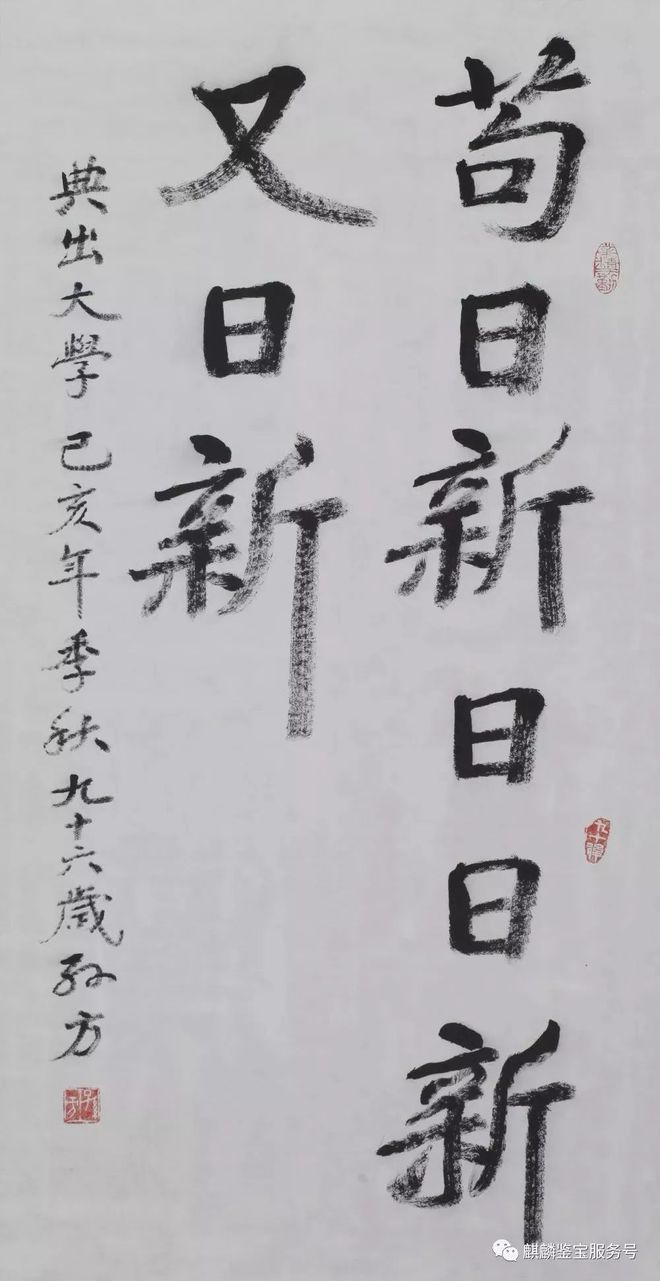 苟日新日日新
又日新
典出大學己亥年季秋九十六歲孙方
麒麟鉴宝服务号